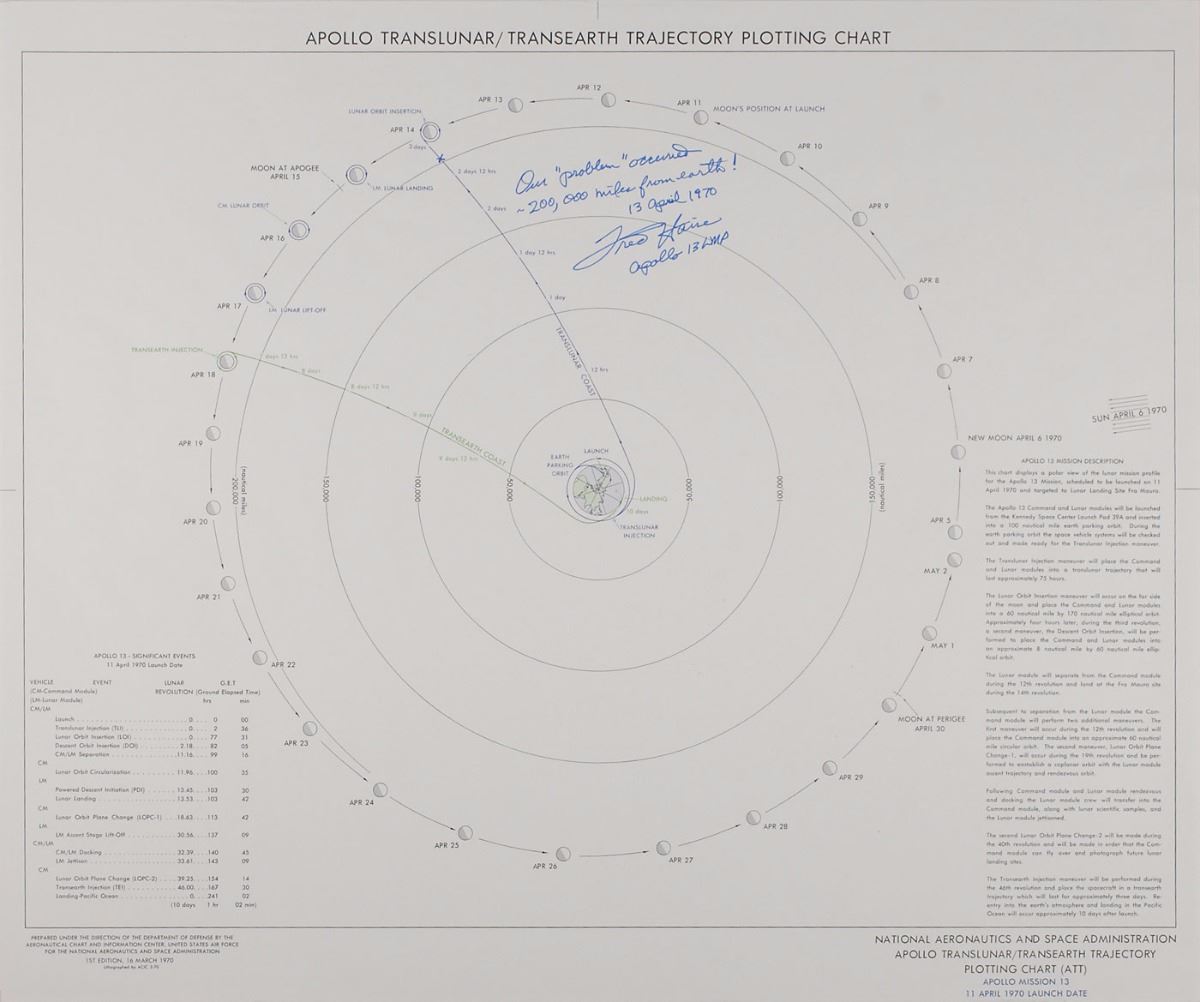 APOLLO TRANSLUNAR/TRANSEARTH TRAJECTORY PLOTTING CHART
APR 12
APR 13
APR 11
MOON'S POSITION AT LAUNCH
LUNAR ORBIT INSERTION
APR 14
APR 10
3 days
Our "problem" occurred
~200,000 miles from earth!
13 April 1970
Fred Haise
Apollo 13 LMP
MOON AT APOGEE
APRIL 15
2 days 12 hrs
LM LUNAR LANDING
CM LUNAR ORBIT
2 days
APR 9
APR 16
1 day 12 hrs
APR 8
1 day
APR 17
LM LUNAR LIFT-OFF
TRANSLUNAR COAST
TRANSEARTH INJECTION
days 12 hrs
APR 7
APR 18
8 days
12 hrs
8 days 12 hrs
9 days
SUN APRIL 6 1970
TRANSEARTH COAST
9 days 12 hrs
NEW MOON APRIL 6 1970
APR 19
LAUNCH
EARTH
PARKING
ORBIT
200,000
(nautical miles)
150,000
100,000
50,000
50,000
100,000
150,000
(nautical miles)
LANDING
10 days
TRANSLUNAR
INJECTION
APR 20
APR 5
MAY 2
APR 21
MAY 1
APR 22
MOON AT PERIGEE
APRIL 30
APR 23
APR 29
APR 24
APR 28
APR 25
APR 26
APR 27
APOLLO 13 MISSION DESCRIPTION
This chart displays a polar view of the lunar mission profile
for the Apollo 13 Mission, scheduled to be launched on 11
April 1970 and targeted to Lunar Landing Site Fra Mauro.
The Apollo 13 Command and Lunar modules will be launched
from the Kennedy Space Center Launch Pad 39A and inserted
into a 100 nautical mile earth parking orbit. During the
earth parking orbit the space vehicle systems will be checked
out and made ready for the Translunar Injection maneuver.
The Translunar Injection maneuver will place the Command
and Lunar modules into a translunar trajectory that will
last approximately 75 hours.
The Lunar Orbit Insertion maneuver will occur on the far side
of the moon and place the Command and Lunar modules
into a 60 nautical mile by 170 nautical mile elliptical orbit.
Approximately four hours later, during the third revolution,
a second maneuver, the Descent Orbit Insertion, will be per-
formed to place the Command and Lunar modules into
an approximate 8 nautical mile by 60 nautical mile ellip-
tical orbit.
The Lunar module will separate from the Command module
during the 12th revolution and land at the Fra Mauro site
during the 14th revolution.
Subsequent to separation from the Lunar module the Com-
mand module will perform two additional maneuvers. The
first maneuver will occur during the 12th revolution and will
place the Command module into an approximate 60 nautical
mile circular orbit. The second maneuver, Lunar Orbit Plane
Change-1, will occur during the 19th revolution and be per-
formed to establish a coplanar orbit with the Lunar module
ascent trajectory and rendezvous orbit.
Following Command module and Lunar module rendezvous
and docking the Lunar module crew will transfer into the
Command module, along with lunar scientific samples, and
the Lunar module jettisoned.
The second Lunar Orbit Plane Change-2 will be made during
the 40th revolution and will be made in order that the Com-
mand module can fly over and photograph future lunar
landing sites.
The Transearth Injection maneuver will be performed during
the 46th revolution and place the spacecraft in a transearth
trajectory which will last for approximately three days. Re-
entry into the earth's atmosphere and landing in the Pacific
Ocean will occur approximately 10 days after launch.
APOLLO 13 - SIGNIFICANT EVENTS
11 April 1970 Launch Date
VEHICLE EVENT LUNAR G.E.T
(CM-Command Module) REVOLUTION (Ground Elapsed Time)
(LM-Lunar Module) hrs min
CM/LM
Launch 0 0 00
Translunar Injection (TLI) 0 2 36
Lunar Orbit Insertion (LOI) 0 77 31
Descent Orbit Insertion (DOI) 2.18 82 05
CM/LM Separation 11.16 99 16
CM
Lunar Orbit Circularization 11.96 100 35
LM
Powered Descent Initiation (PDI) 13.45 103 30
Lunar Landing 13.53 103 42
CM
Lunar Orbit Plane Change (LOPC-1) 18.63 113 42
LM
LM Ascent Stage Lift-Off 30.56 137 09
CM/LM
CM/LM Docking 32.39 140 45
LM Jettison 33.61 143 09
CM
Lunar Orbit Plane Change (LOPC-2) 39.25 154 14
Transearth Injection (TEI) 46.00 167 30
Landing-Pacific Ocean 0 241 02
(10 days 1 hr 02 min)
PREPARED UNDER THE DIRECTION OF THE DEPARTMENT OF DEFENSE BY THE
AERONAUTICAL CHART AND INFORMATION CENTER, UNITED STATES AIR FORCE
FOR THE NATIONAL AERONAUTICS AND SPACE ADMINISTRATION
1ST EDITION, 16 MARCH 1970
Lithographed by ACIC 3-70
NATIONAL AERONAUTICS AND SPACE ADMINISTRATION
APOLLO TRANSLUNAR/TRANSEARTH TRAJECTORY
PLOTTING CHART (ATT)
APOLLO MISSION 13
11 APRIL 1970 LAUNCH DATE